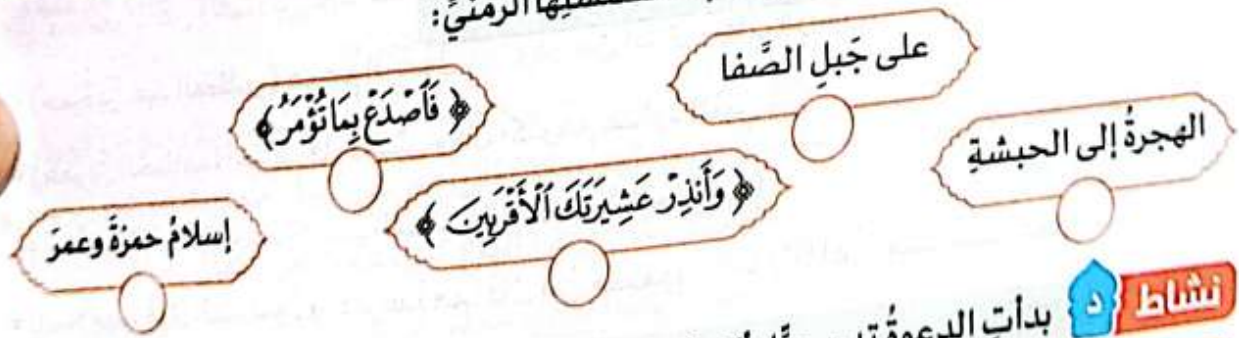 الزمنيِّ:
على جَبلِ الصَّفا
﴿ فَٱصْدَعْ بِمَا تُؤْمَرُ ﴾
الهجرةُ إلى الحبشةِ
﴿ وَأَنذِرْ عَشِيرَتَكَ ٱلْأَقْرَبِينَ ﴾
إسلامُ حمزةَ وعمرَ
نشاط د بدأتِ الدعوةُ